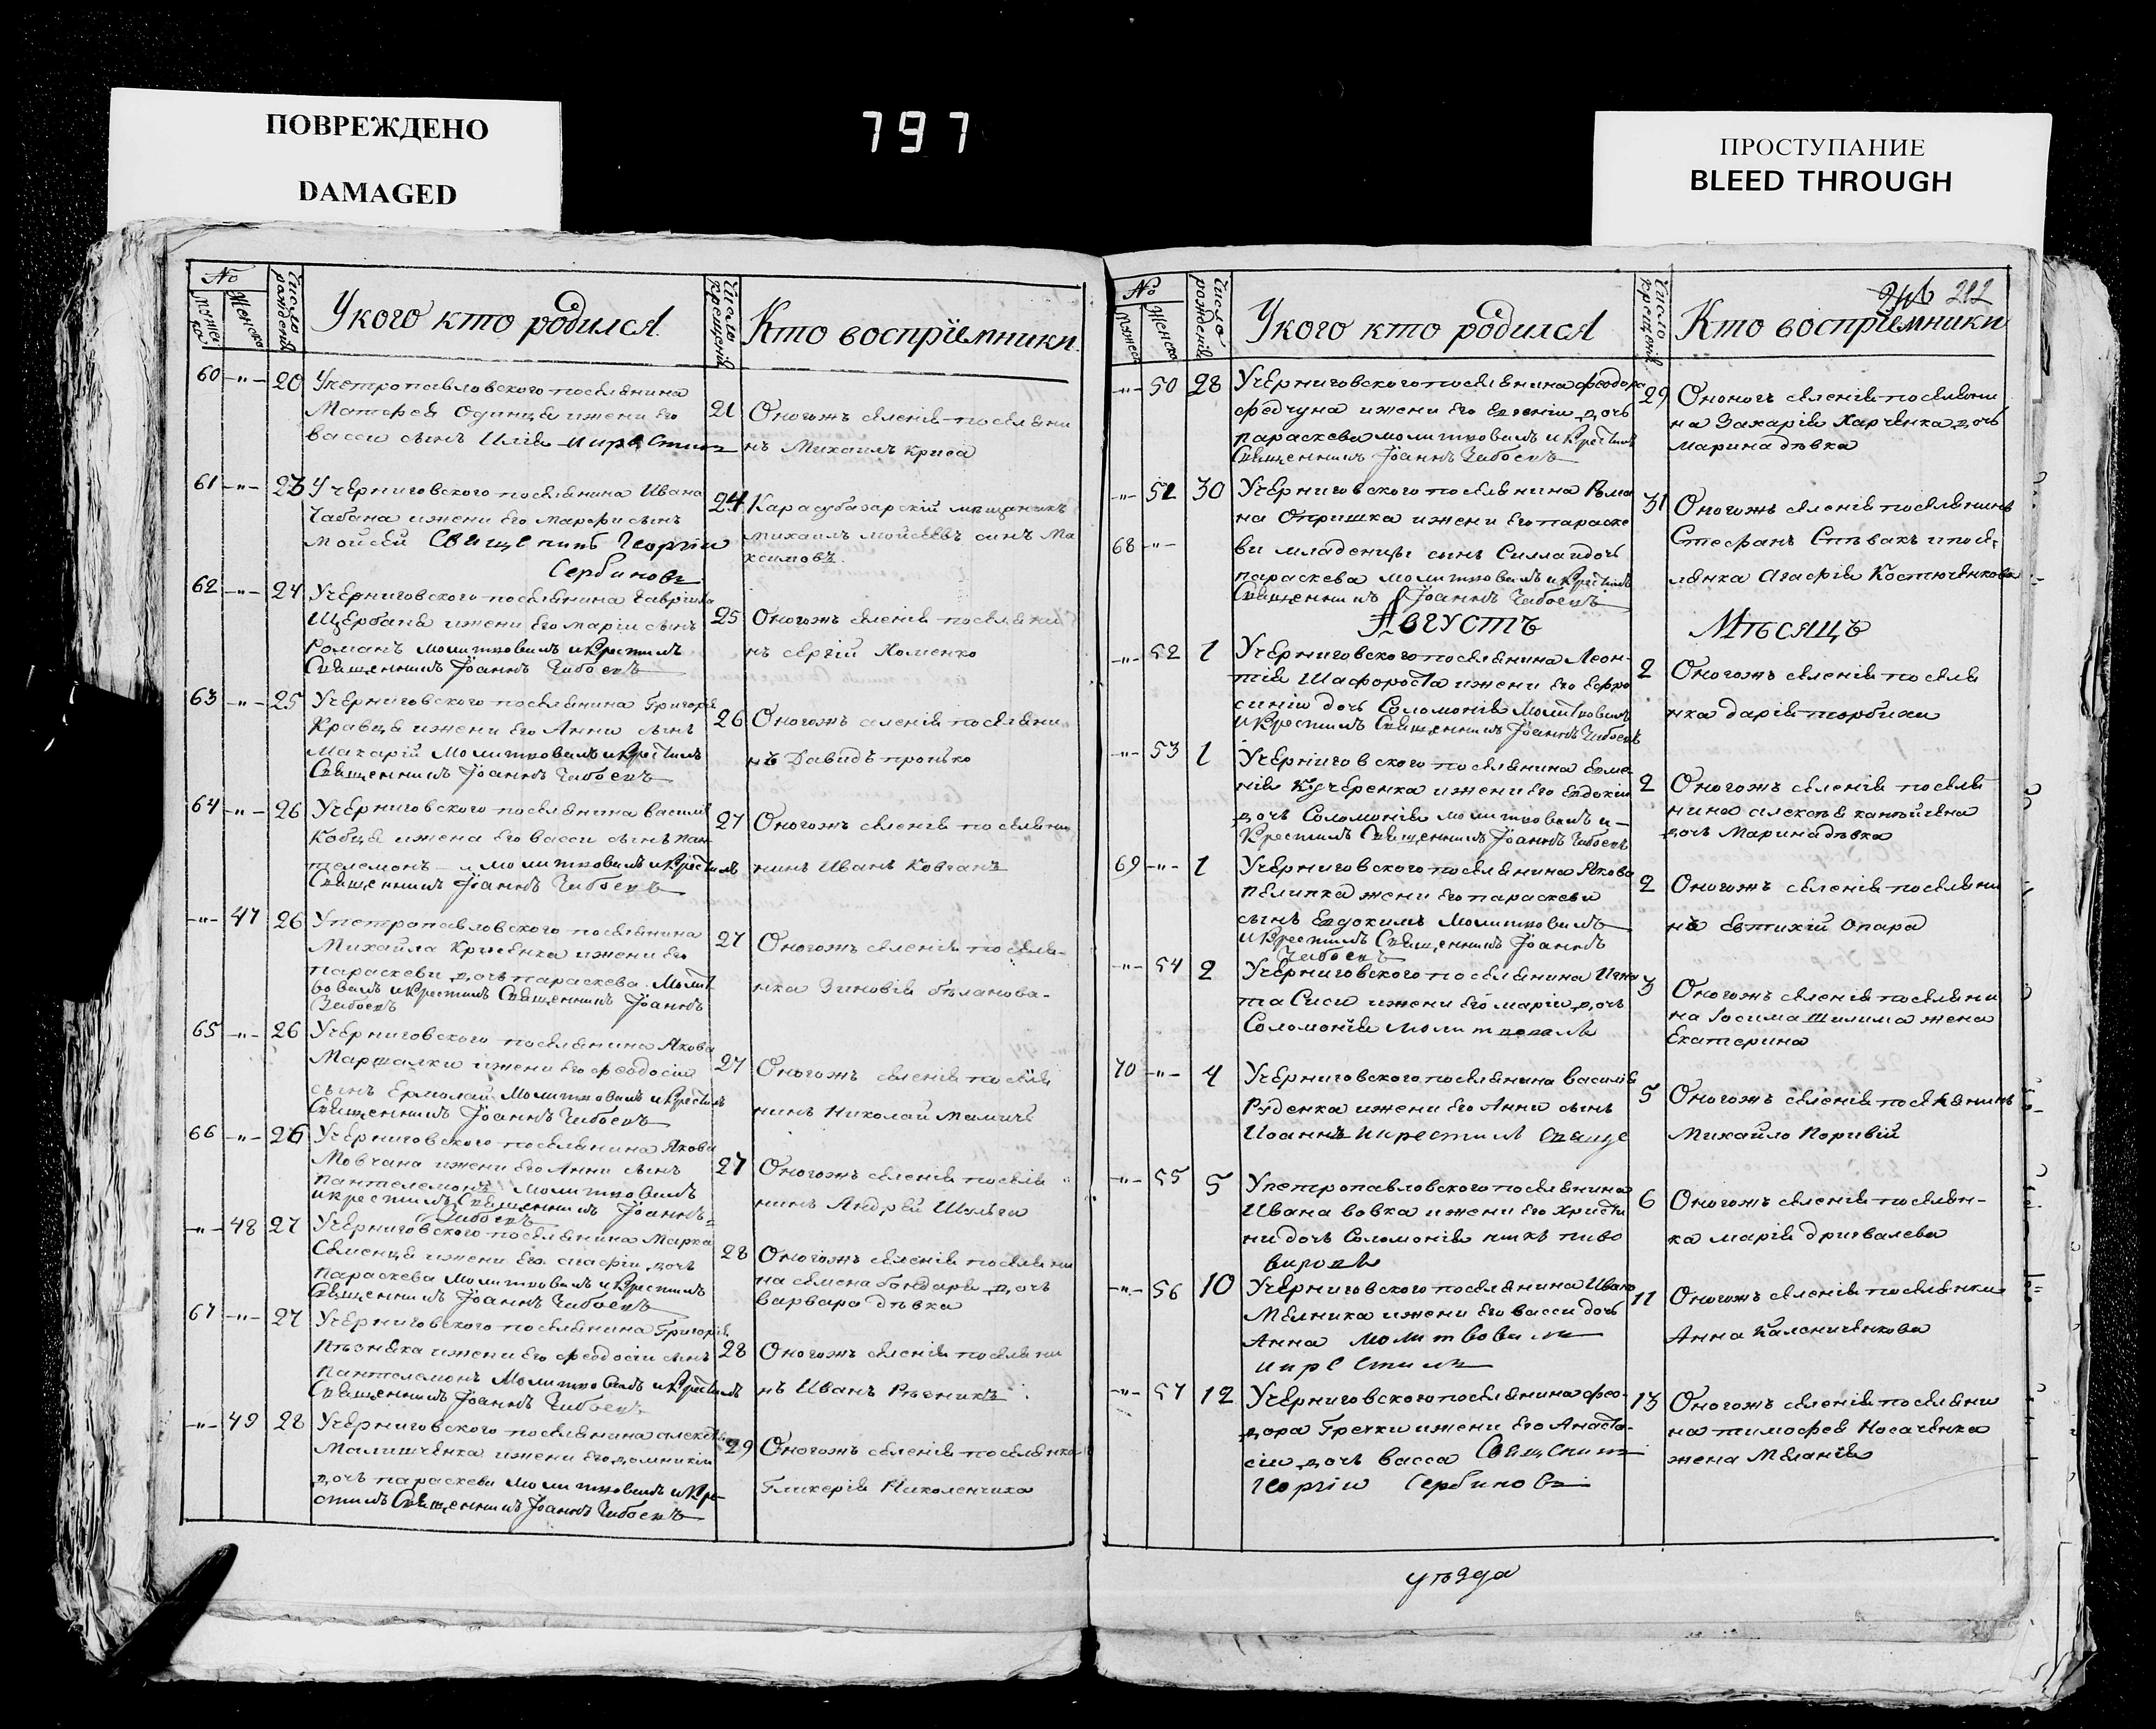 ПОВРЕЖДЕНО
DAMAGED
797
ПРОСТУПАНИЕ
BLEED THROUGH
№
мужеска
Женско
Число рожденія
У кого кто родился
Число крещенія
Кто воспріемники
60 -"- 20 Упетропавловскаго поселянина
Матфея Одинца и жены его
васси сынъ Илія и крестил
21 Оногожъ селенія поселяни
нъ Михаилъ Криса
61 -"- 23 Учерниговского поселянина Ивана
Чабана и жени его Марфи сынъ
Мойсей Священникъ Георгіи
Сербиновъ
24 Карасубазарскій мещанинъ
михаилъ мойсеевъ синъ Ма
ксимовъ.
62 -"- 24 Учерниговского поселянина Гавріила
Щербана и жени его Маріи сынъ
Романъ молитвовалъ и Крестилъ
Священникъ Іоаннъ Чибоевъ
25 Оногожъ селенія поселяни
нъ сергій Хоменко
63 -"- 25 Учерниговского поселянина Григорія
Кравца и жени его Анни сынъ
Макарій молитвовалъ и Крестилъ
Священникъ Іоаннъ Чибоевъ
26 Оногожъ селенія поселяни
нъ Давидъ пронько
64 -"- 26 Учерниговского поселянина василія
Кобца и жена его васси сынъ пан
телемонъ молитвовалъ и Крестилъ
Священникъ Іоаннъ Чибоевъ
27 Оногожъ селенія поселяни
нинъ Иванъ Ковганъ
-"- 47 26 Упетропавловского поселянина
Михайла Крисенка и жени его
параскеви дочь параскева Молит
вовалъ и Крестилъ Священникъ Іоаннъ
Чибоевъ
27 Оногожъ селенія поселя-
нка Зиновія беланова-
65 -"- 26 Учерниговского поселянина Якова
Маршалки и жени его феодосіи
сынъ Ермолай Молитвовалъ и Крестилъ
Священникъ Іоаннъ Чибоевъ
27 Оногожъ селенія поселя
нинъ Николай Мамичъ
66 -"- 26 Учерниговского поселянина Якова
Мовчана и жени его Анни сынъ
пантелемонъ молитвовалъ
и крестилъ Священникъ Іоаннъ
Чибоевъ
27 Оногожъ селенія поселя
нинъ Андрей Шульга
-"- 48 27 Учерниговского поселянина Марка
Семенца и жени его агафіи дочь
параскева молитвовалъ и Крестилъ
Священникъ Іоаннъ Чибоевъ
28 Оногожъ селенія поселяни
на семена бондаря дочь
варвара дѣвка
67 -"- 27 Учерниговского поселянина Григорія
и жени его феодосіи сынъ
пантелемонъ Молитвовалъ и Крестилъ
Священникъ Іоаннъ Чибоевъ
28 Оногожъ селенія поселяни
нъ Иванъ Резникъ
-"- 49 28 Учерниговского поселянина алексѣя
Малишченка и жени его домникіи
дочь параскеви молитвовалъ и Кре-
стилъ Священникъ Іоаннъ Чибоевъ
29 Оногожъ селенія поселянка
Гликерія Николенчиха
212
№
мужеск
Женско
Число рожденія
У кого кто родился
Число крещенія
Кто воспріемники
-"- 50 28 Учерниговского поселянина феодора
федчуна и жени его Евгеніи дочь
параскева молитвовалъ и Крестилъ
Священникъ Іоаннъ Чибоевъ
29 Оногожъ селенія поселяни
на Захарія Харченка дочь
марина дѣвка
-"- 51 30 Учерниговского поселянина Рома
на Опришка и жени его параске
68 -"- ви младенцы сынъ Силла и дочь
параскева молитвовалъ и Крестилъ
Священникъ Іоаннъ Чибоевъ
31 Оногожъ селенія поселянинъ
Стефанъ Спѣвакъ и посе,
лянка Агафія Костюченкова
Августъ Мѣсяцъ
-"- 52 1 Учерниговского поселянина Леон-
тія Шафороста и жени его Ефро
синіи дочь Соломонія Молитвовалъ
и Крестилъ Священникъ Іоаннъ Чибоевъ
2 Оногожъ селенія поселя
нка дарія торбиха
-"- 53 1 Учерниговского поселянина Ерма
нія Кучеренка и жени его Евдокіи
дочь Соломонія молитвовалъ и-
Крестилъ Священникъ Іоаннъ Чибоевъ
2 Оногожъ селенія поселя
нина алексѣя
дочь Марина дѣвка
69 -"- 1 Учерниговского поселянина Якова
пелипка жени его параскеви
сынъ Евдокимъ Молитвовалъ
и Крестилъ Священникъ Іоаннъ
Чибоевъ
2 Оногожъ селенія поселяни
нъ Евтихій Опара
-"- 54 2 Учерниговского поселянина Игна
та Сиси и жени его маріи дочь
Соломонія Молитвовалъ
3 Оногожъ селенія поселяни
на Зосима жена
Екатерина
70 -"- 4 Учерниговского поселянина василія
Руденка и жени его Анни сынъ
Иоаннъ и крестилъ Свяще
5 Оногожъ селенія поселянинъ
Михайло Поривій
-"- 55 5 Упетропавловского поселянина
Ивана вовка и жени его Христи
ни дочь Соломонія
6 Оногожъ селенія поселян-
ка марія
-"- 56 10 Учерниговского поселянина Ивана
Мелника и жени его васси дочь
Анна молитвовалъ
и крестилъ
11 Оногожъ селенія поселянка
Анна Калениченкова
-"- 57 12 Учерниговского поселянина фео-
дора Гречки и жени его Анаста-
сіи дочь васса Священникъ
Георгіи Сербиновъ
13 Оногожъ селенія поселяни
на тимофея Носаченка
жена Меланія
уѣзда